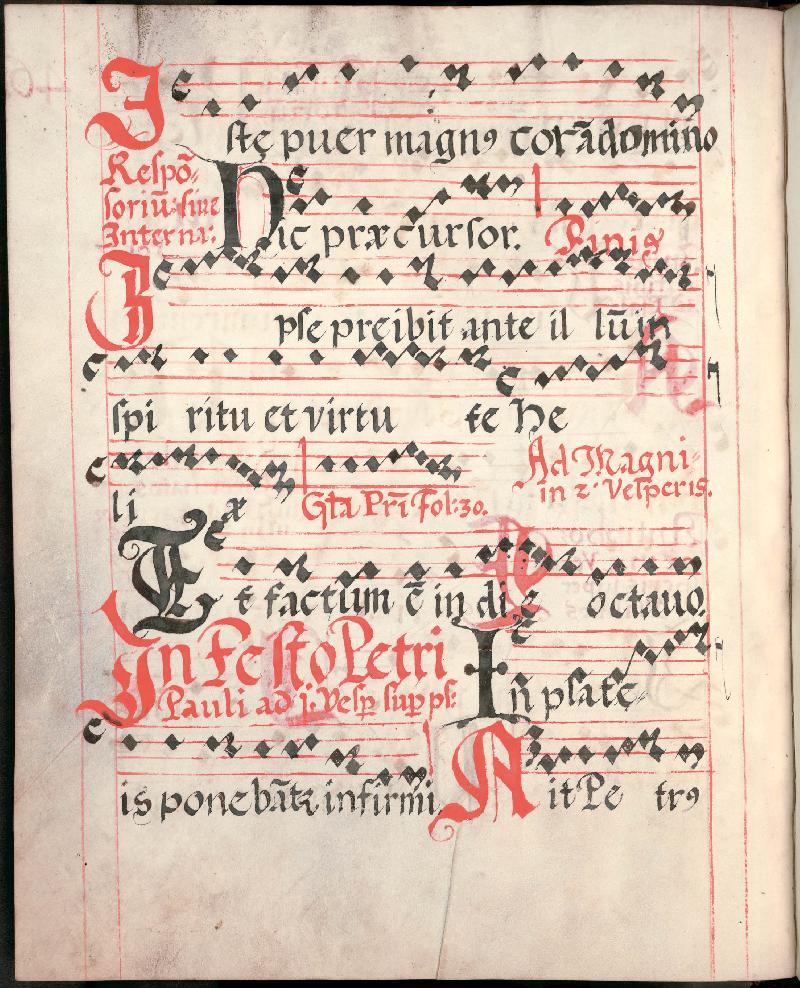 Iste puer magnꝯ corā domino
Respō-
soriū siue
Interna:
Hic præcursor. Finis
Ipse preibit ante il lūin
spi ritu et virtu te He
li æ Gl̄a Pr̄i Fol: 30. Ad Magni-
in 2. Vesperis.
Et factum ē in di e octauo.
In Festo Petri
Pauli ad j. Vesp sup ps:
In plate-
is ponebāt infirmi Ait Pe trꝯ